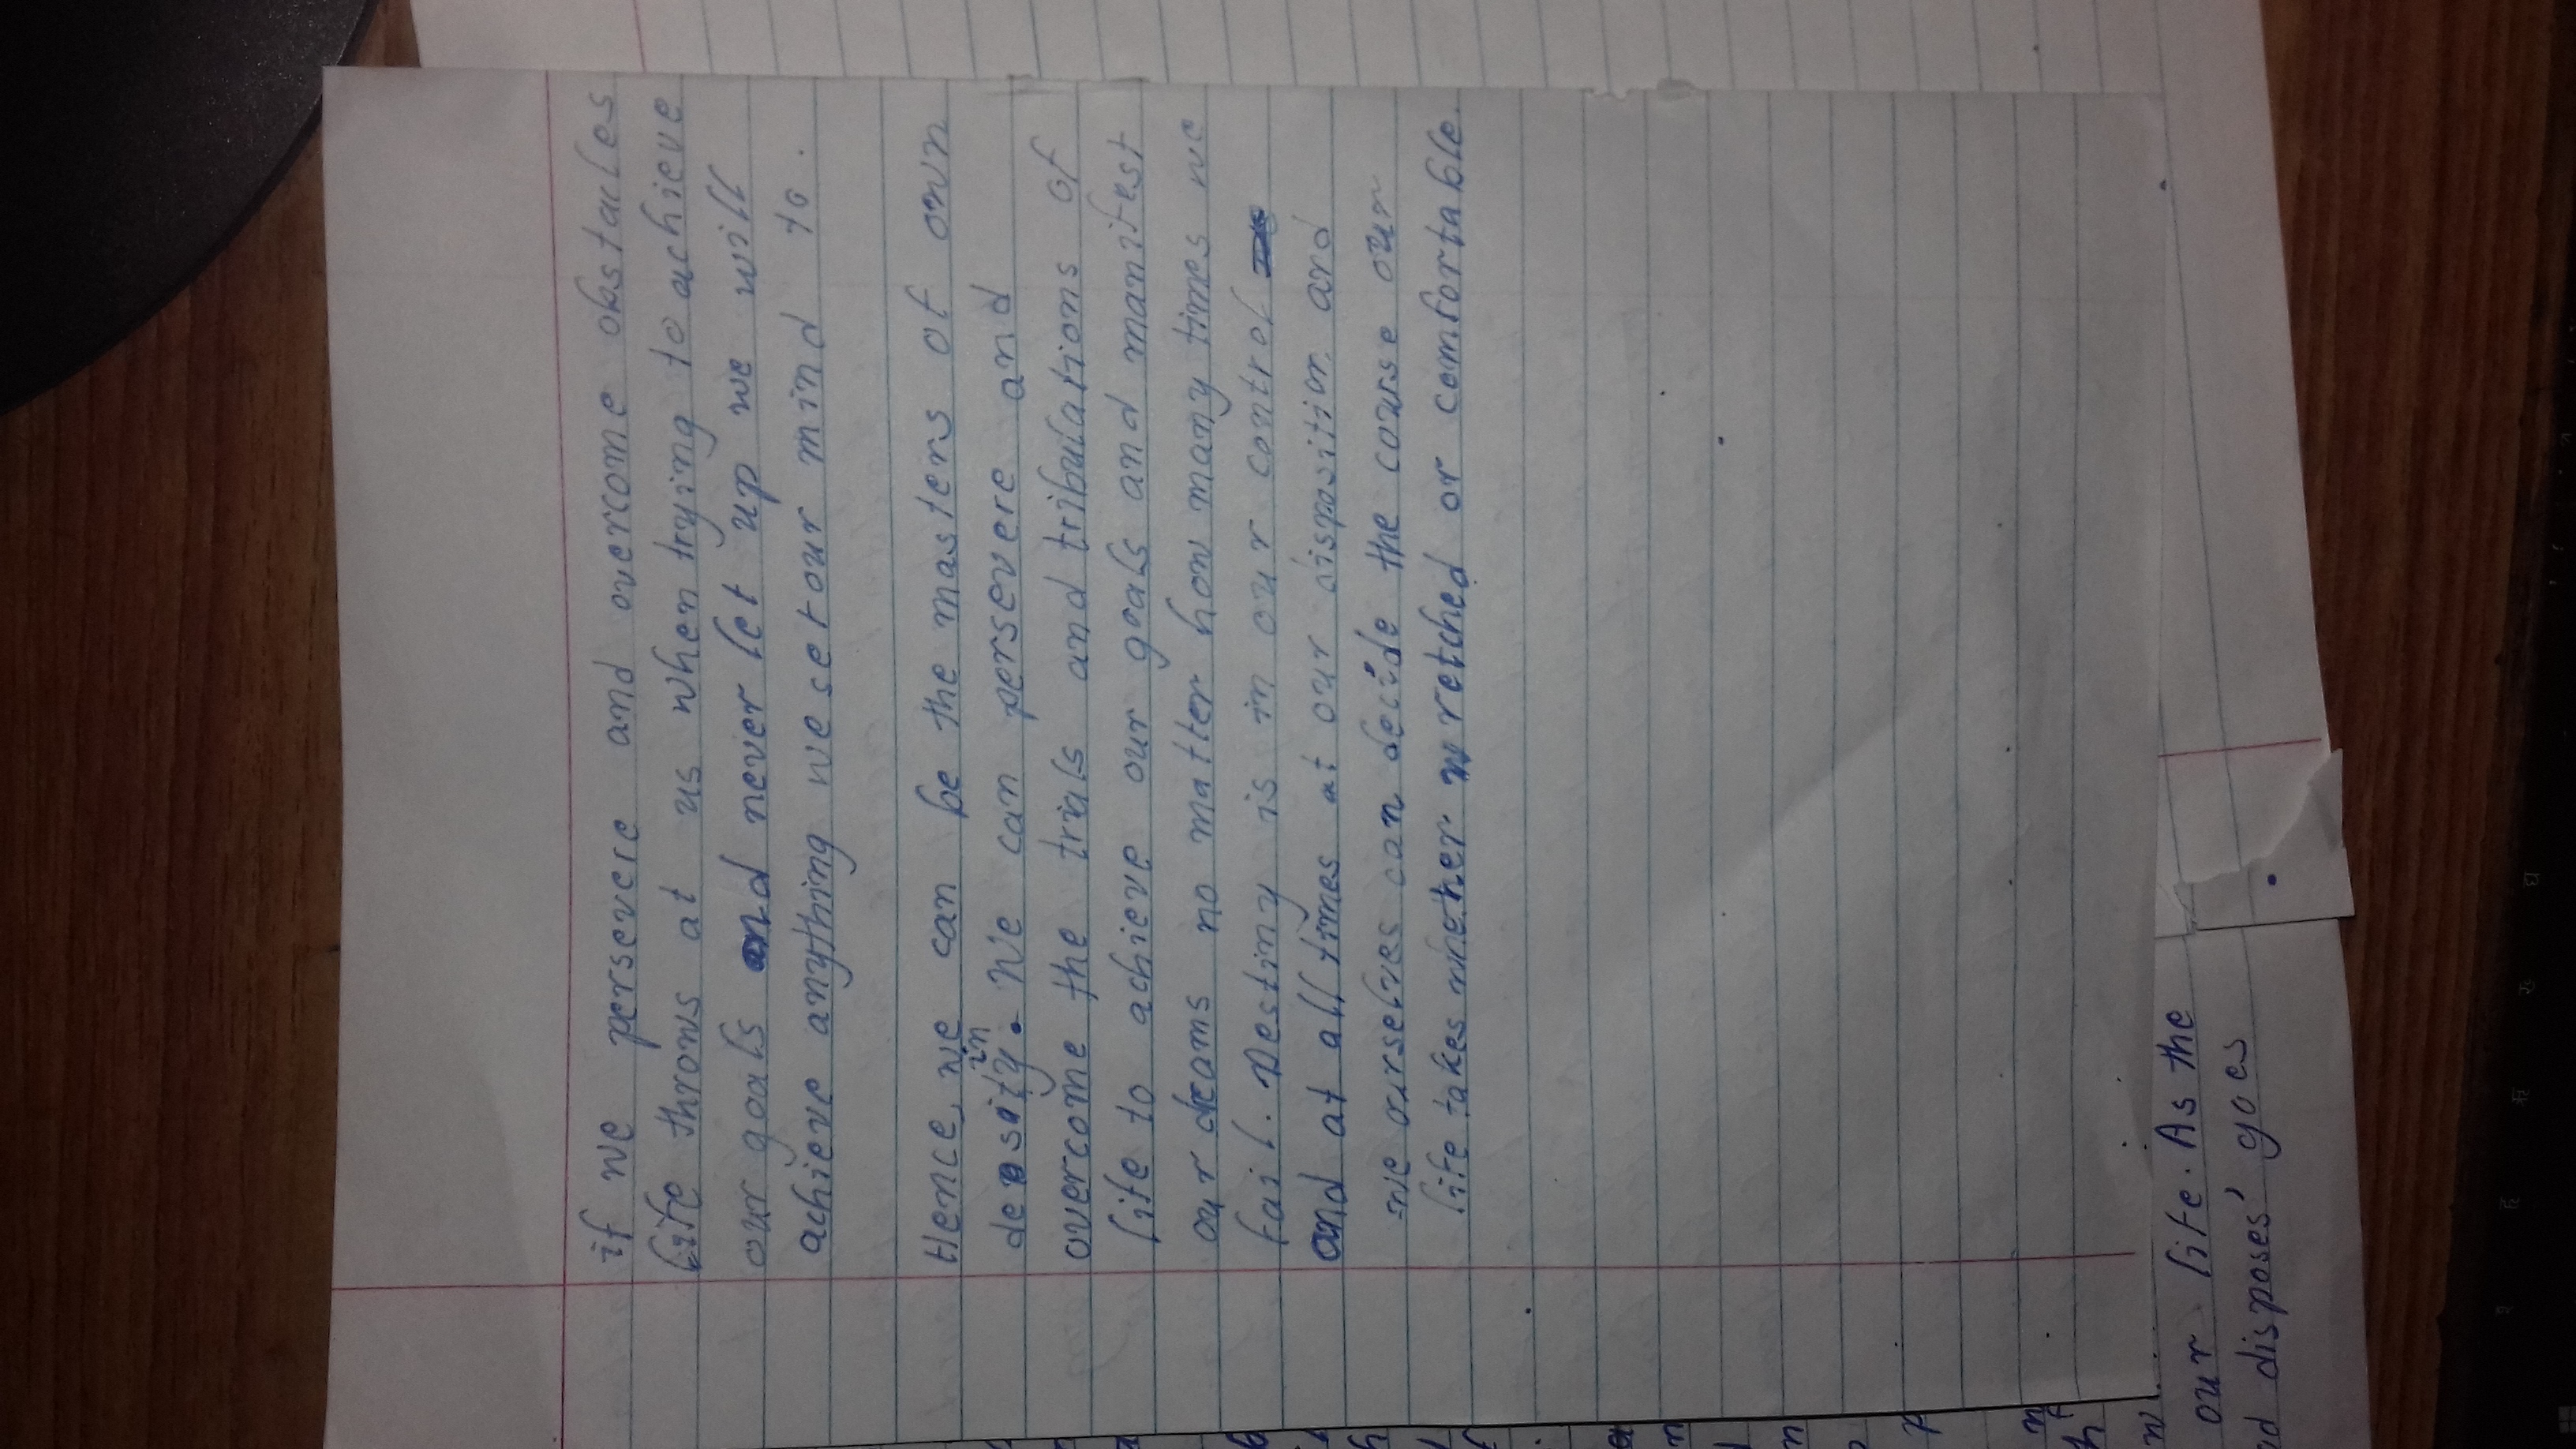 if we persevere and overcome obstacles
life throws at us when trying to achieve
our goals and never let up we will
achieve anything we set our mind to.
Hence, we can be the masters of own
in
density. We can persevere and
overcome the trials and tribulations of
life to achieve our goals and manifest
our dreams no matter how many times we
fail. Destiny is in our control
and at all times at our disposition and
we ourselves can decide the course our
life takes whether wretched or comfortable.
our life. As the
disposes' goes